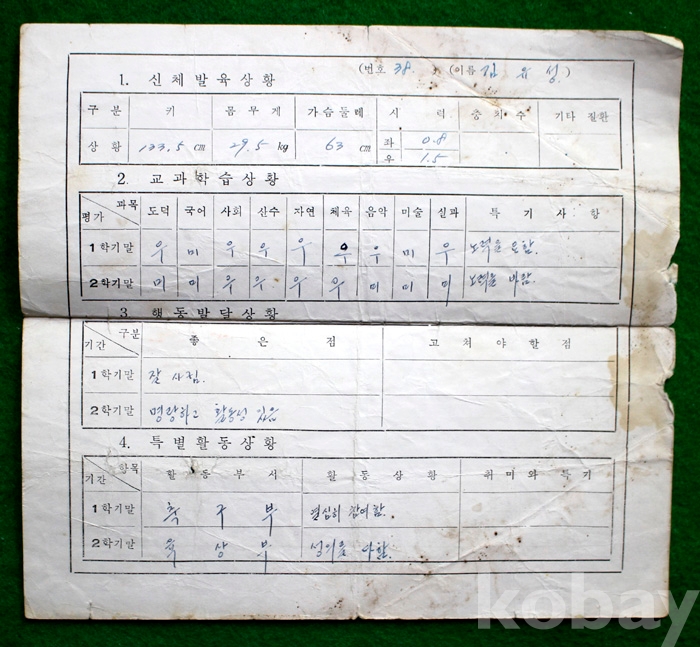 (번호 38. ) (이름 김 유 성)
1. 신 체 발 육 상 황
구 분 키 몸 무 게 가 슴 둘 레 시 력 충 치 수 기 타 질 환
상 황 133.5 cm 29.5 kg 63 cm 좌 0.8
우 1.5
2. 교 과 학 습 상 황
과목
평가 도 덕 국 어 사 회 산 수 자 연 체 육 음 악 미 술 실 과 특 기 사 항
1학기말 우 미 우 우 우 우 우 미 우 노력을 요함.
2학기말 미 미 우 우 우 우 미 미 미 노력을 바람.
3. 행 동 발 달 상 황
구분
기간 좋 은 점 고 쳐 야 할 점
1학기말 잘 사귐.
2학기말 명랑하고 활동성 있음
4. 특 별 활 동 상 황
항목
기간 활 동 부 서 활 동 상 황 취 미 와 특 기
1학기말 축 구 부 열심히 참여함.
2학기말 육 상 부 성의를 다함.
kobay